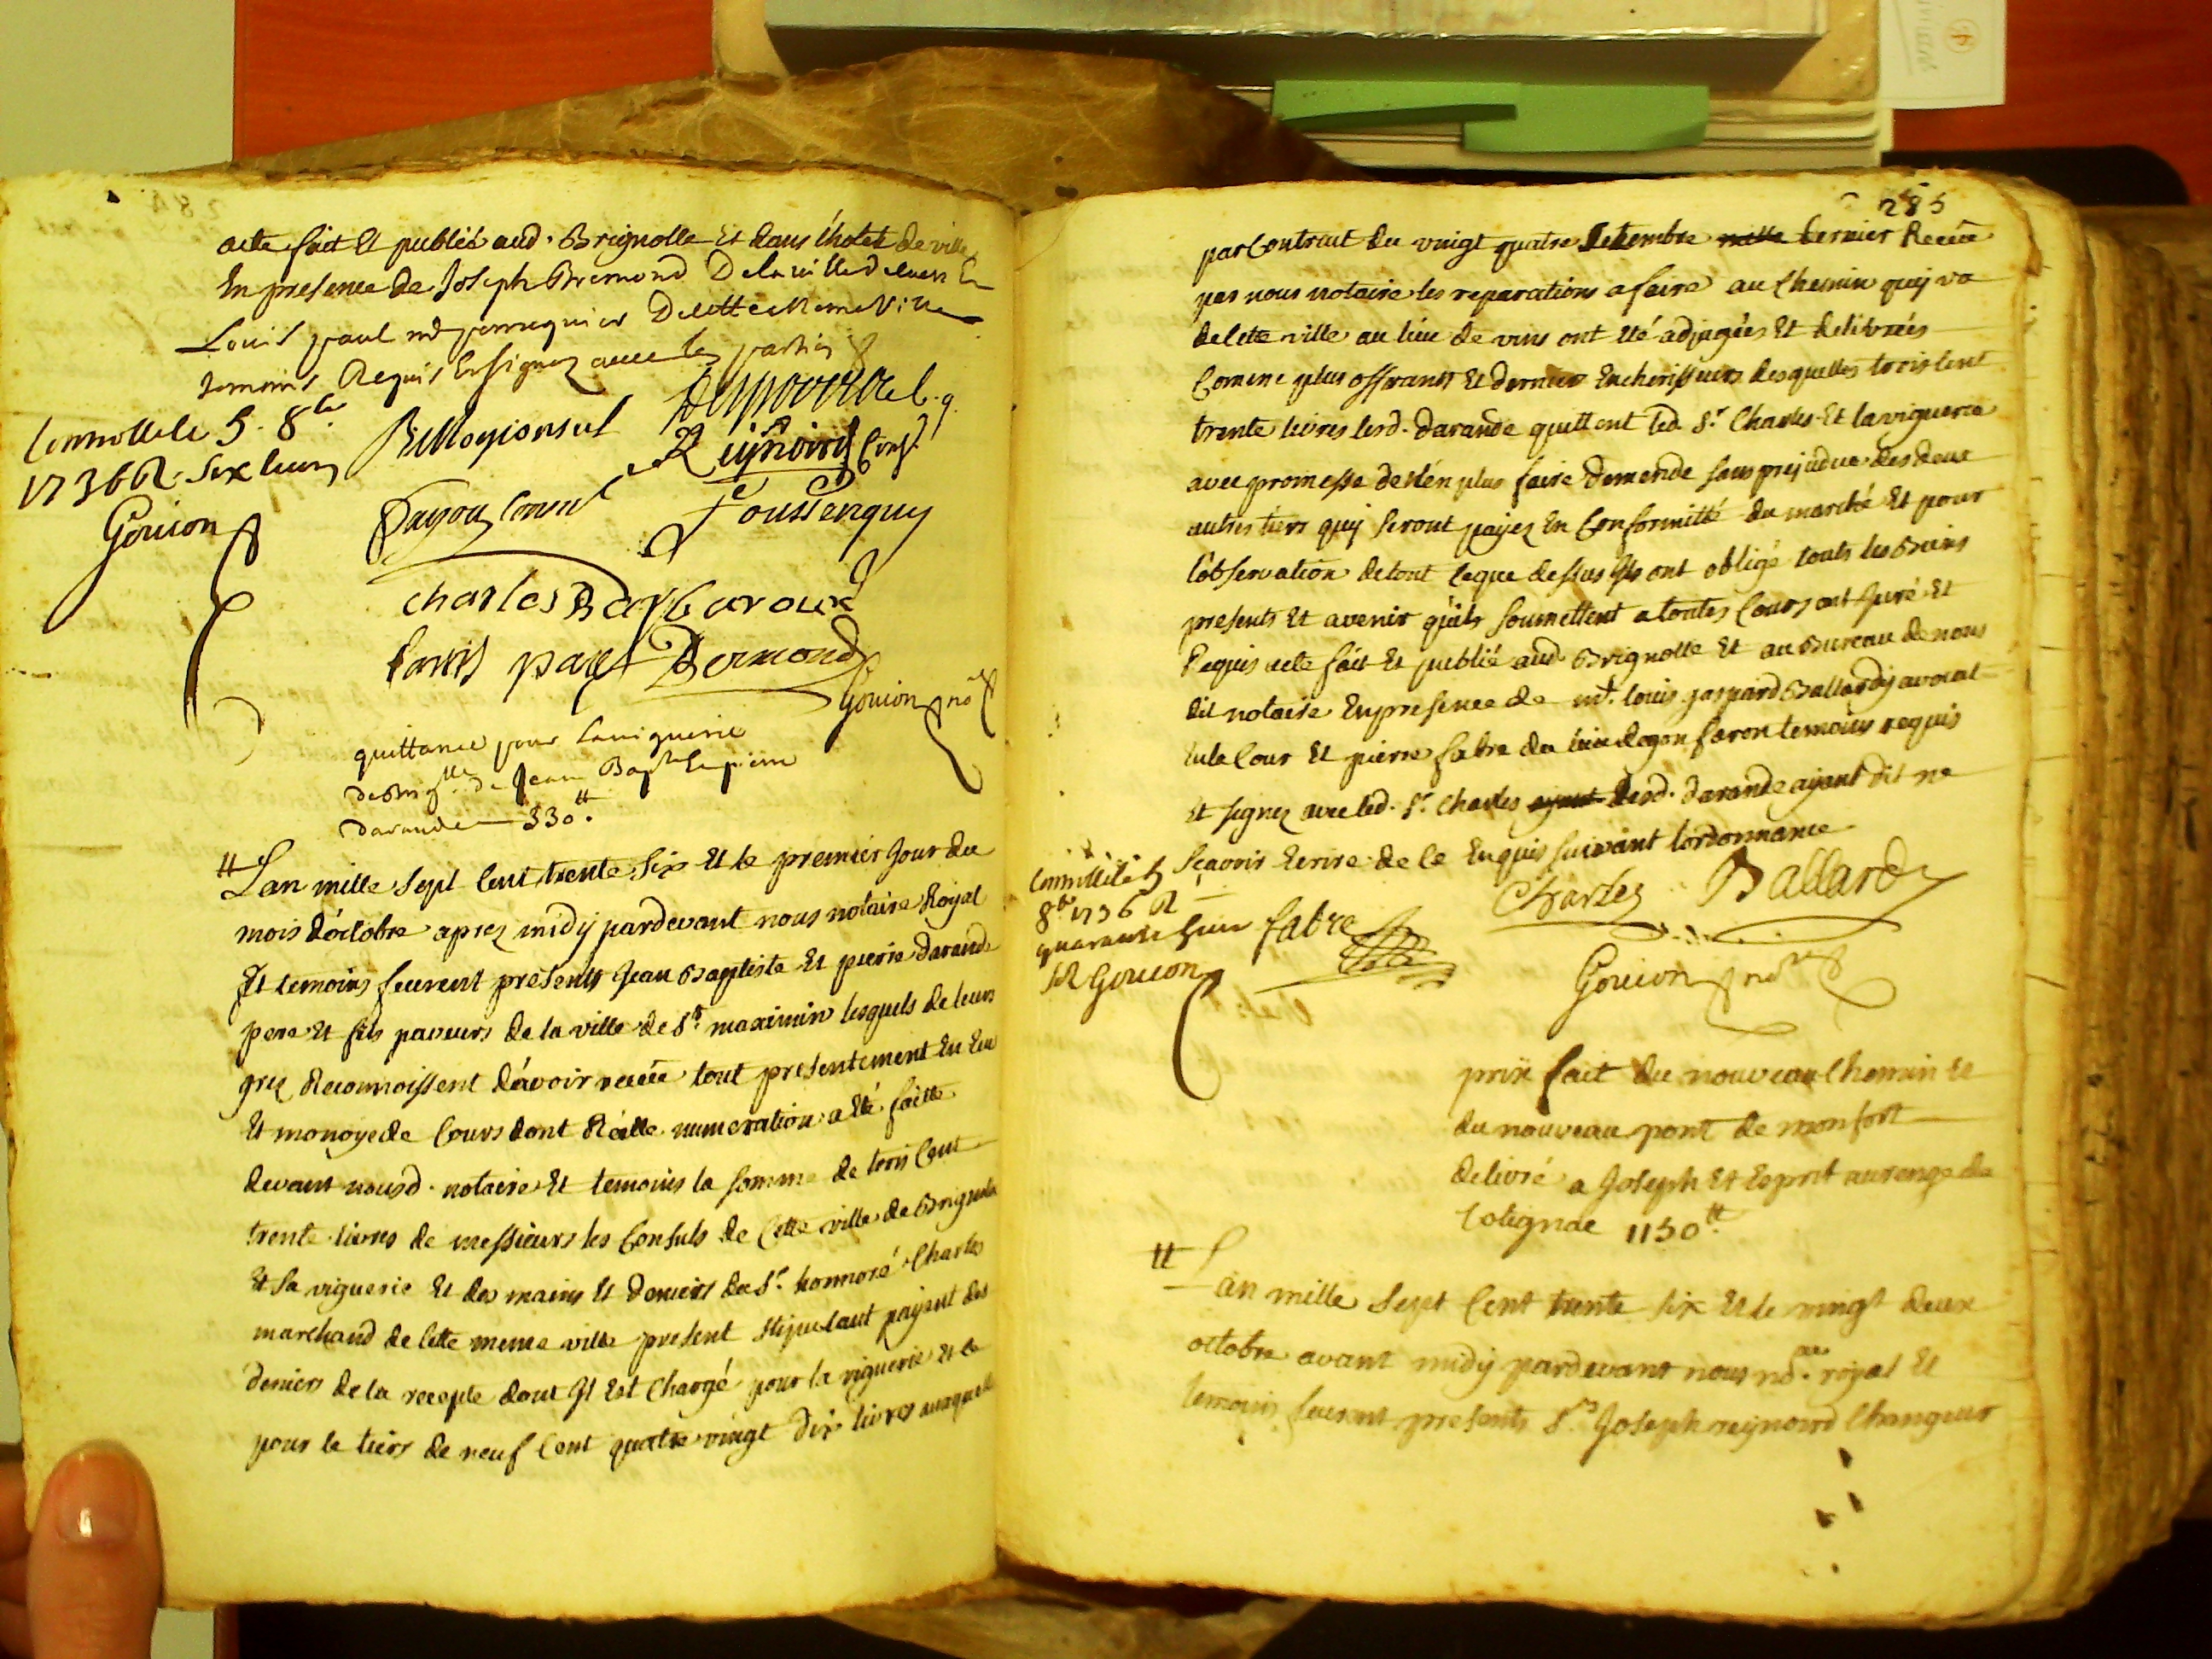 acte fait et publié aud. Brignolle et dans l'hotel de ville
En presence de Joseph Bremond De la ville
Louis paul md perruquier De cette meme Ville
temoins Requis Ensignez avec les parties
Connolle le 5. 8bre
1736 R. six livres
Gouion
Reijnoird Consl
Fayou Consul
Foussenquy
charles Barbaroux
Louis paul Bremond
Gouion no
quittance pour la viguerie
de Brigolle de Jean Baptte et pierre
darande 330tt.
tt Lan mille Sept Cent trente Six Et le premier Jour du
mois d'octobre aprez midÿ pardevant nous notaire Royal
Et temoins feurent presents Jean Baptiste Et pierre darande
pere Et fils paveurs de la ville de St. maximin lesquels de leurs
grez Reconnoissent d'avoir receu tout presentement En Eeu
Et monoye de Cours dont Réelle numeration a Eté faitte
devant nousd. notaire Et temoins la somme de trois Cent
trente livres de messieurs les Consuls de Cette ville de Brignolle
Et sa viguerie Et des mains Et deniers du Sr. honnoré Charles
marchand de Cette meme ville present stipulant payent des
deniers de la recepte dont Jl Est Chargé pour la viguerie Et Ce
pour le tiers de neuf Cent quatre vingt dix livres auxquels
285
par Contract du vingt quatre Setembre mille dernier Receu
par nous notaire les reparations a faire au Chemin quÿ va
de Cette ville au lieu de vins ont Eté adjugées Et delivrées
Comme plus offrants Et derniers Encherisseurs desquelles trois Cent
trente livres lesd. darande quittent led. Sr. Charles Et la viguerie
avec promesse de n'en plus faire demende sans prejudice des deux
autres tiers quÿ seront payez En Conformitté du marché Et pour
l'observation de tout Ceque dessus Jls ont obligé touts les Biens
presents Et avenir qu'ils soumettent a toutes Cours ont Juré Et
Requis acte fait Et publié aud. Brignolle Et au Bureau de nous
dit notaire En presence de me. louis gaspard Ballardÿ avocat
En la Cour Et pierre fabre du lieu de gonfaron temoins requis
Et signez avec led. Sr. Charles ayant lesd. darande ayant dit ne
sçavoir Ecrire de Ce Enquis suivant l'ordonnance
Connollé le 5
8bre 1736 R
quarante huit
Gouion
fabre
Charles
Ballardy
Gouion nore
prix fait du nouveau Chemin Et
du nouveau pont de monfort
delivré a Joseph Et Esprit aurenge de
Cotignac 1150tt.
tt Lan mille Sept Cent trente six Et le vingt deux
octobre avant midÿ pardevant nous nore. royal Et
temoins feurent presents Srs Joseph reijnoird Changeur